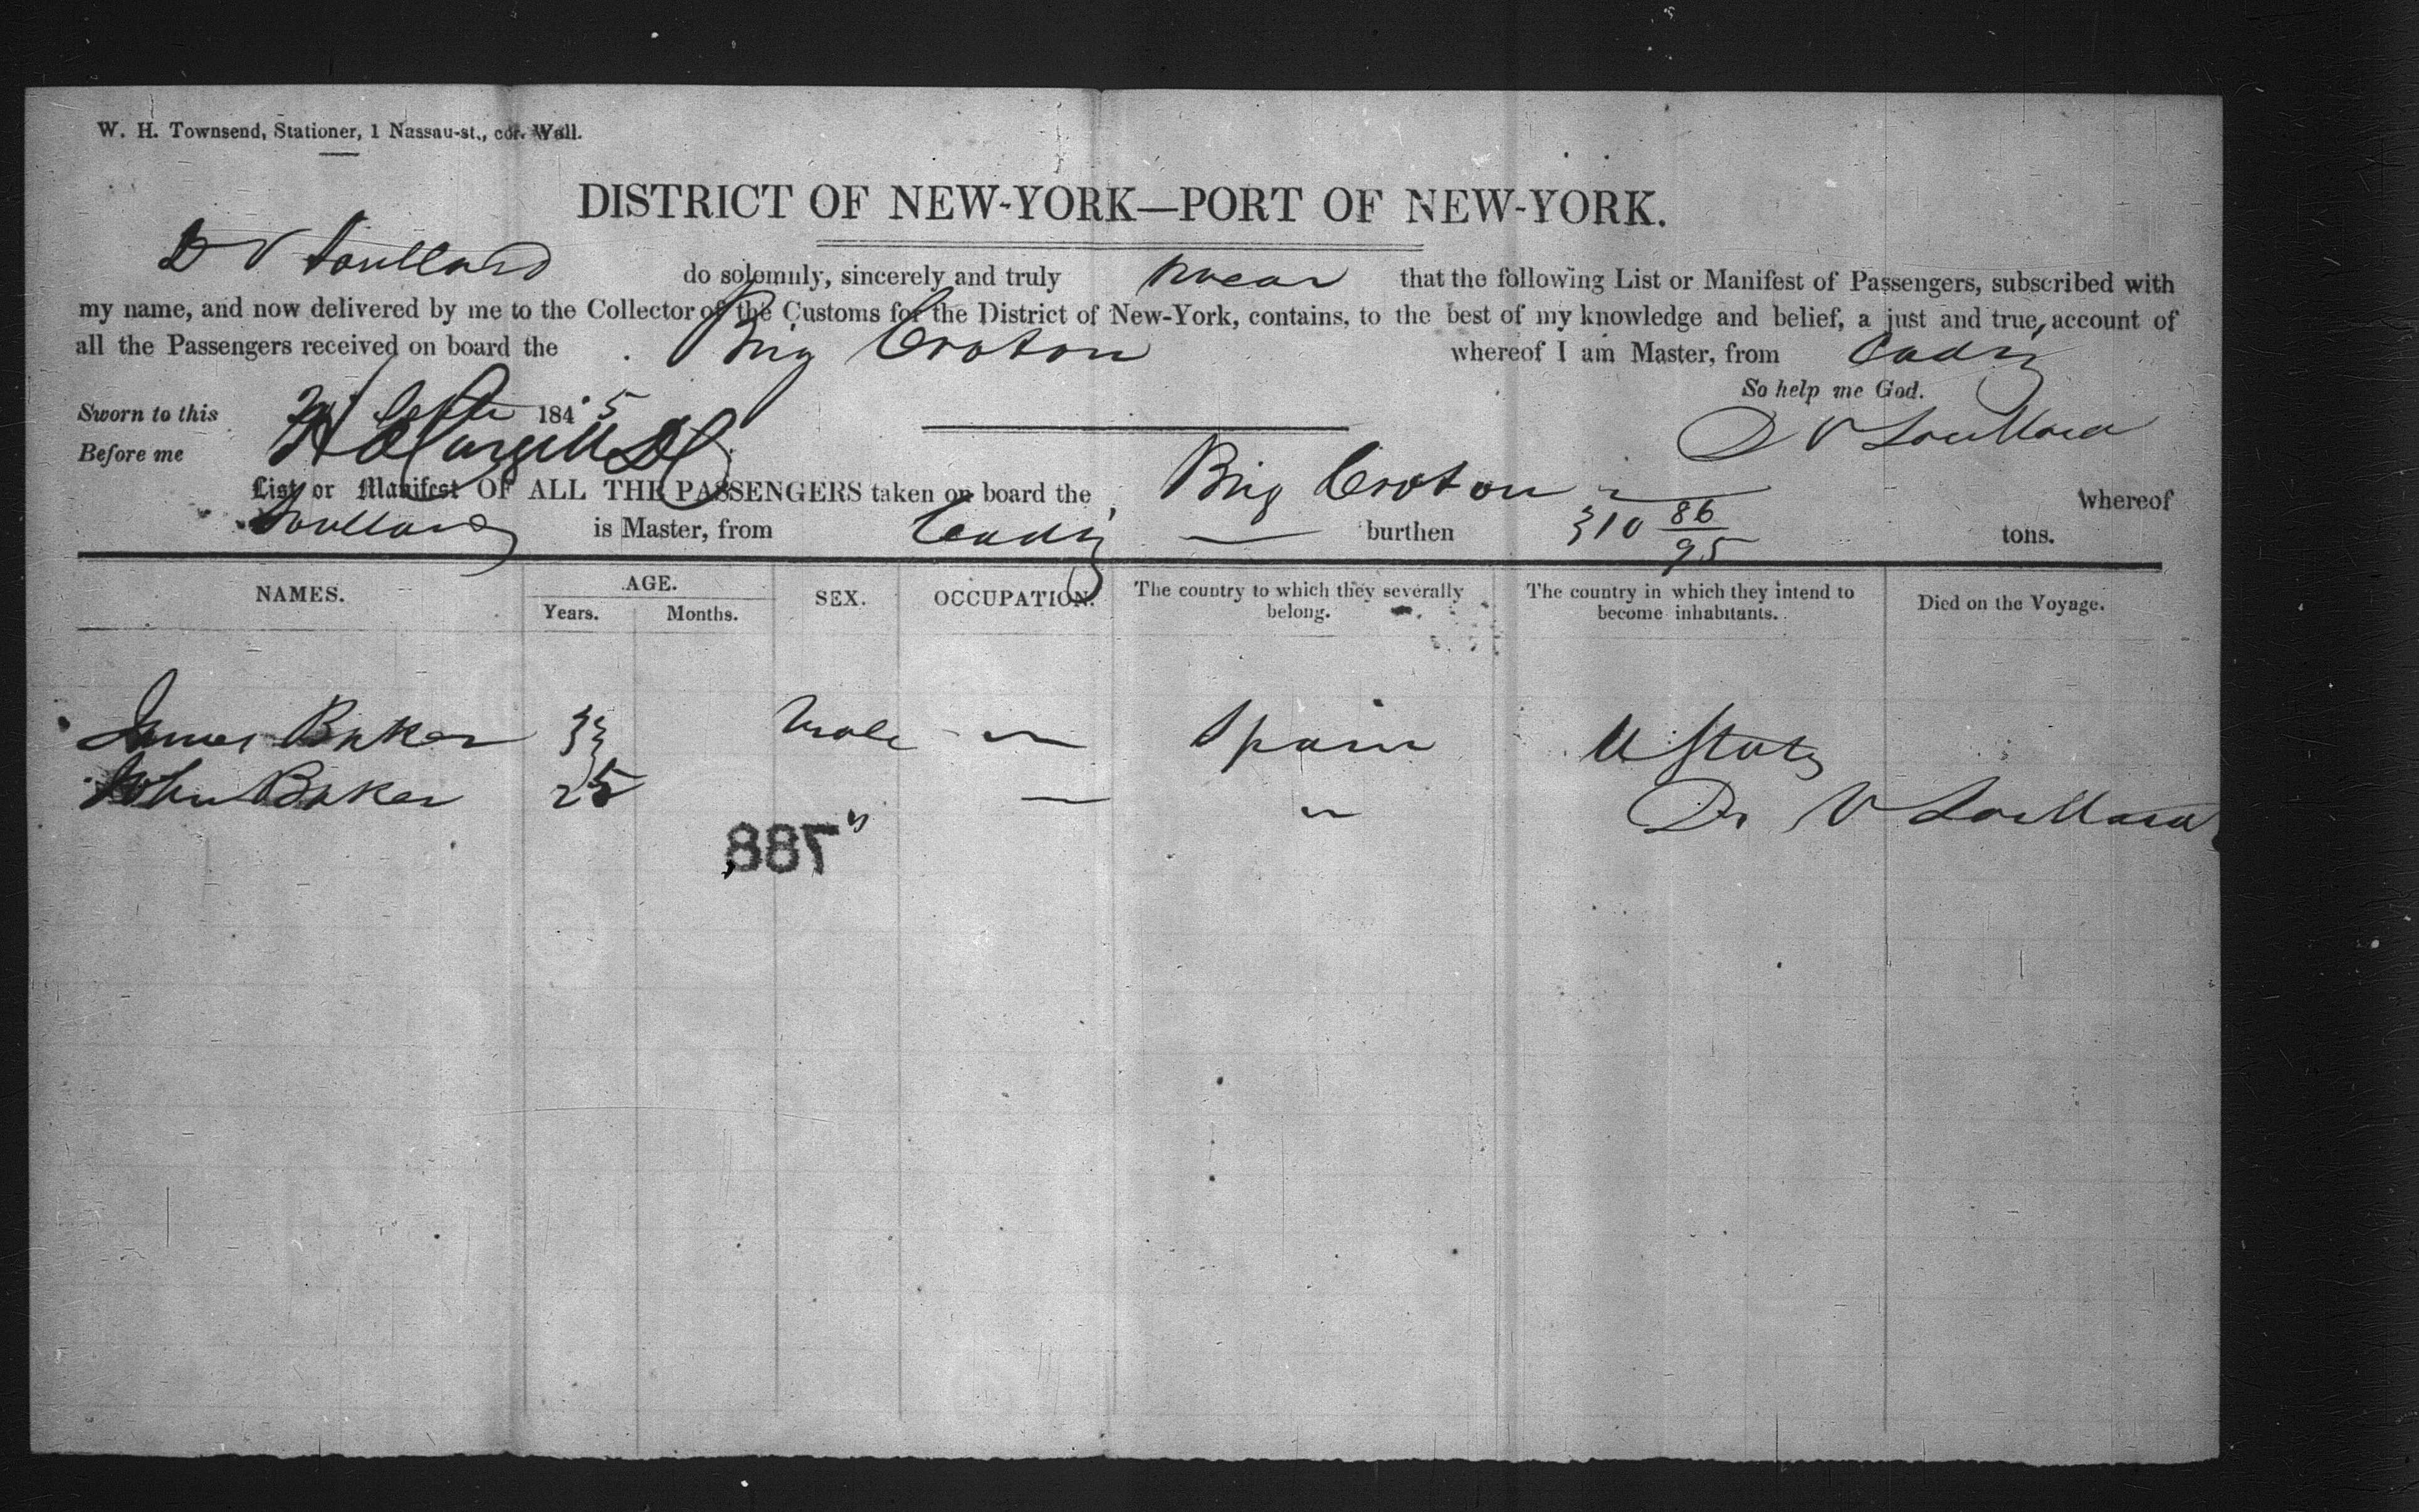 W. H. Townsend, Stationer, 1 Nassau-st., cor. Wall.
DISTRICT OF NEW-YORK—PORT OF NEW-YORK.
D V Soullard do solemnly, sincerely and truly swear that the following List or Manifest of Passengers, subscribed with
my name, and now delivered by me to the Collector of the Customs for the District of New-York, contains, to the best of my knowledge and belief, a just and true account of
all the Passengers received on board the Brig Croton whereof I am Master, from Cadiz
So help me God.
Sworn to this Sept 1845
D V Soullard
Before me
List or Manifest OF ALL THE PASSENGERS taken on board the Brig Croton whereof
Soullard is Master, from Cadiz burthen 310 86/95 tons.
NAMES. AGE. SEX. OCCUPATION. The country to which they severally belong. The country in which they intend to become inhabitants. Died on the Voyage.
Years. Months.
James Baker 33 Male — Spain U States
John Baker 25 " — " D V Soullard
887